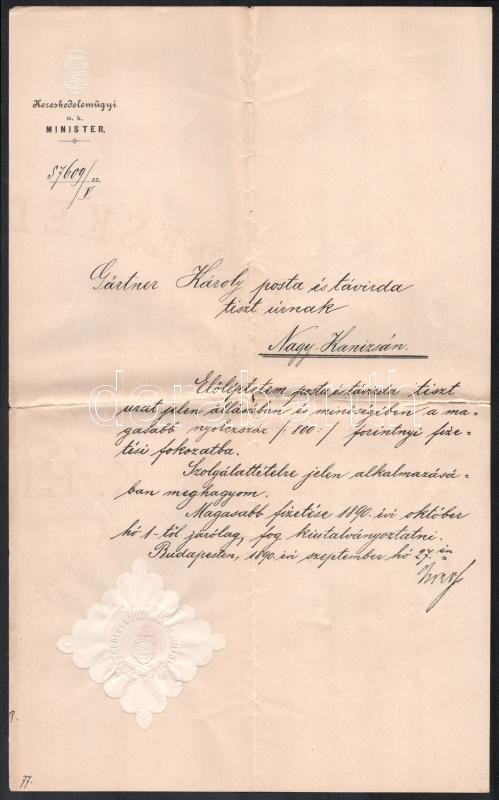 Kereskedelemügyi
m. k.
MINISTER.
57609/sz.
/V
Gärtner Károly posta és távirda
tiszt úrnak
Nagy-Kanizsán.
Előléptetem posta és távirda tiszt
urat jelen állásában és minőségében a ma-
gasabb nyolczszáz /:800:/ forintnyi fize-
tési fokozatba.
Szolgálattételre jelen alkalmazásá-
ban meghagyom.
Magasabb fizetése 1890. évi október
hó 1-től járólag, fog kiutalványoztatni.
Budapesten, 1890. évi szeptember hó 27.én
77.